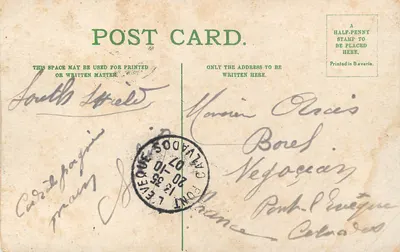 POST CARD.
THIS SPACE MAY BE USED FOR PRINTED
OR WRITTEN MATTER.
ONLY THE ADDRESS TO BE
WRITTEN HERE.
A
HALF-PENNY
STAMP TO
BE PLACED
HERE.
Printed in Bavaria.
South Shield
Monsieur
Borel
Négociant
Pont-l'Evêque
Calvados
France
PONT-L'EVEQUE
CALVADOS
13 35
20 -10
07